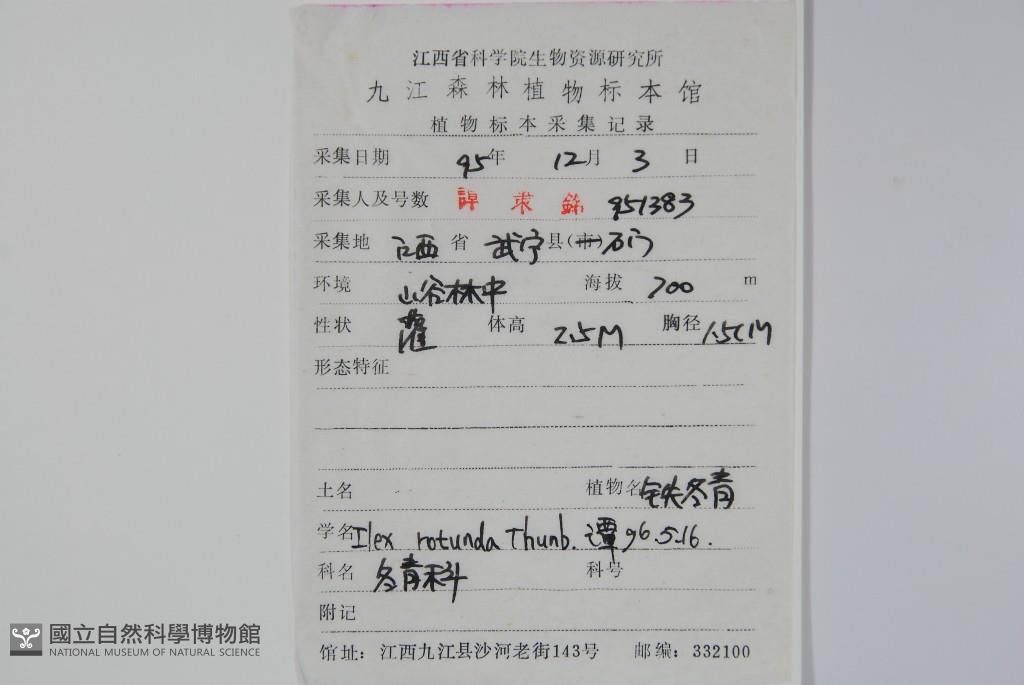 江西省科学院生物资源研究所
九江森林植物标本馆
植物标本采集记录
采集日期 95年 12月 3 日
采集人及号数 譚策銘 951383
采集地 江西 省 武宁县(市)石门
环境 山谷林中 海拔 700 m
性状 灌 体高 2.5M 胸径 1.5CM
形态特征
土名 植物名 铁冬青
学名 Ilex rotunda Thunb. 谭 96.5.16.
科名 冬青科 科号
附记
馆址：江西九江县沙河老街143号 邮编：332100
國立自然科學博物館
NATIONAL MUSEUM OF NATURAL SCIENCE